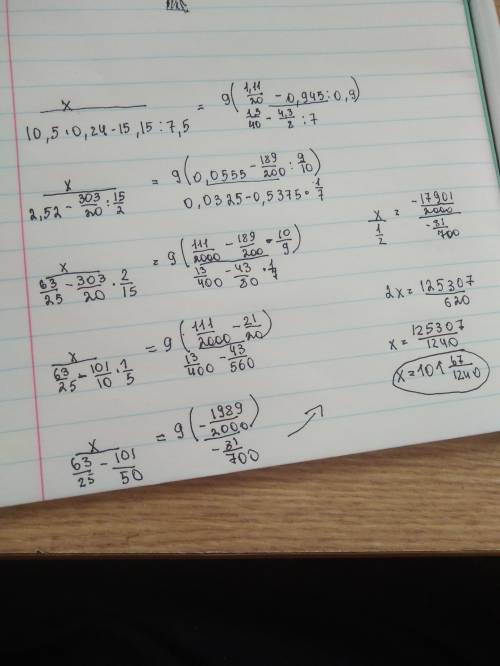 x / (10,5·0,24-15,15:7,5) = 9((1,11/20 - 0,945:0,9) / (1,3/40 - 4,3/8:7))
x / (2,52 - 303/20 : 15/2) = 9((0,0555 - 189/200 : 9/10) / (0,0325-0,5375·1/7))
x / (63/25 - 303/20 · 2/15) = 9((111/2000 - 189/200 · 10/9) / (13/400 - 43/80 · 1/7))
x / (63/25 - 101/10 · 1/5) = 9((111/2000 - 21/20) / (13/400 - 43/560))
x / (63/25 - 101/50) = 9((-1989/2000) / (-31/700))
x / (1/2) = (-17901/2000) / (-31/700)
2x = 125307/620
x = 125307/1240
x=101 67/1240